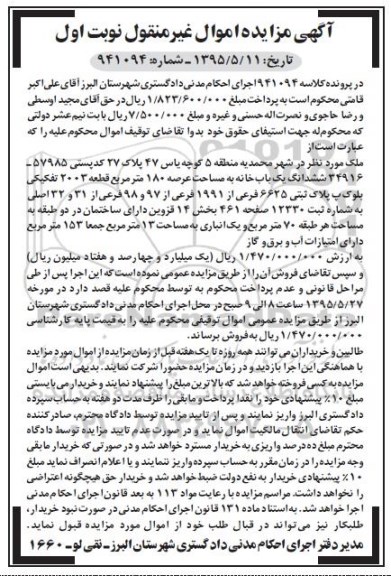 آگهی مزایده اموال غیرمنقول نوبت اول
تاریخ: ۱۳۹۵/۵/۱۱ - شماره: ۹۴۱۰۹۴
در پرونده کلاسه ۹۴۱۰۹۴ اجرای احکام مدنی دادگستری شهرستان البرز آقای علی اکبر
قامتی محکوم است به پرداخت مبلغ ۱/۸۲۳/۶۰۰/۰۰۰ ریال در حق آقای مجید اوسطی
و رضا حاجوی و نصرت اله حسنی و غیره و مبلغ ۷/۵۰۰/۰۰۰ ریال بابت نیم عشر دولتی
که محکوم له جهت استیفای حقوق خود بدوا تقاضای توقیف اموال محکوم علیه را که
عبارت است از
ملک مورد نظر در شهر محمدیه منطقه ۵ کوچه یاس ۴۷ پلاک ۲۷ کدپستی ۵۷۹۸۵ -
۳۴۹۱۶ ششدانگ یک باب خانه به مساحت عرصه ۱۸۰ متر مربع قطعه ۲۰۰۳ تفکیکی
بلوک پ پلاک ثبتی ۶۶۲۵ فرعی از ۱۹۹۱ فرعی از ۹۷ و ۹۸ فرعی از ۳۱ و ۳۲ اصلی
به شماره ثبت ۱۲۳۳۰ صفحه ۴۶۱ بخش ۱۴ قزوین دارای ساختمان در دو طبقه به
مساحت هر طبقه ۷۰ متر مربع و یک انباری به مساحت ۱۳ متر مربع جمعا ۱۵۳ متر مربع
دارای امتیازات آب و برق و گاز
به ارزش ۱/۴۷۰/۰۰۰/۰۰۰ ریال (یک میلیارد و چهارصد و هفتاد میلیون ریال)
و سپس تقاضای فروش آن را از طریق مزایده عمومی نموده است که این اجرا پس از طی
مراحل قانونی و عدم پرداخت محکوم به توسط محکوم علیه قصد دارد در مورخه
۱۳۹۵/۵/۲۷ ساعت ۸ الی ۹ صبح در محل اجرای احکام مدنی دادگستری شهرستان
البرز از طریق مزایده عمومی اموال توقیفی محکوم علیه را به قیمت پایه کارشناسی
۱/۴۷۰/۰۰۰/۰۰۰ ریال به فروش برساند.
طالبین و خریداران می توانند همه روزه تا یک هفته قبل از زمان مزایده از اموال مورد مزایده
با هماهنگی این اجرا بازدید و در زمان مزایده حضورا شرکت نمایند. بدیهی است اموال
مزایده به کسی فروخته خواهد شد که بالاترین مبلغ را پیشنهاد نمایند و خریدار می بایستی
مبلغ ۱۰٪ پیشنهادی خود را نقدا پرداخت و مابقی را ظرف مدت دو هفته به حساب سپرده
دادگستری البرز واریز نمایند و پس از تایید مزایده توسط دادگاه محترم، صادرکننده
حکم تقاضای انتقال مالکیت اموال نماید و در صورت عدم تایید مزایده توسط دادگاه
محترم مبلغ ده درصد واریزی به خریدار مسترد خواهد شد و در صورتی که خریدار مابقی
وجه مزایده را در زمان مقرر به حساب سپرده واریز ننمایند و یا اعلام انصراف نماید مبلغ
۱۰٪ پیشنهادی خریدار به نفع دولت ضبط خواهد شد و خریدار حق هیچگونه اعتراضی
را نخواهد داشت. مراسم مزایده با رعایت مواد ۱۱۳ به بعد قانون اجرای احکام مدنی
اجرا خواهد شد. به استناد ماده ۱۳۱ قانون اجرای احکام مدنی در صورت نبود خریدار،
طلبکار نیز می تواند در قبال طلب خود از اموال مورد مزایده قبول نماید.
مدیر دفتر اجرای احکام مدنی دادگستری شهرستان البرز - نقی لو - ۱۶۶۰